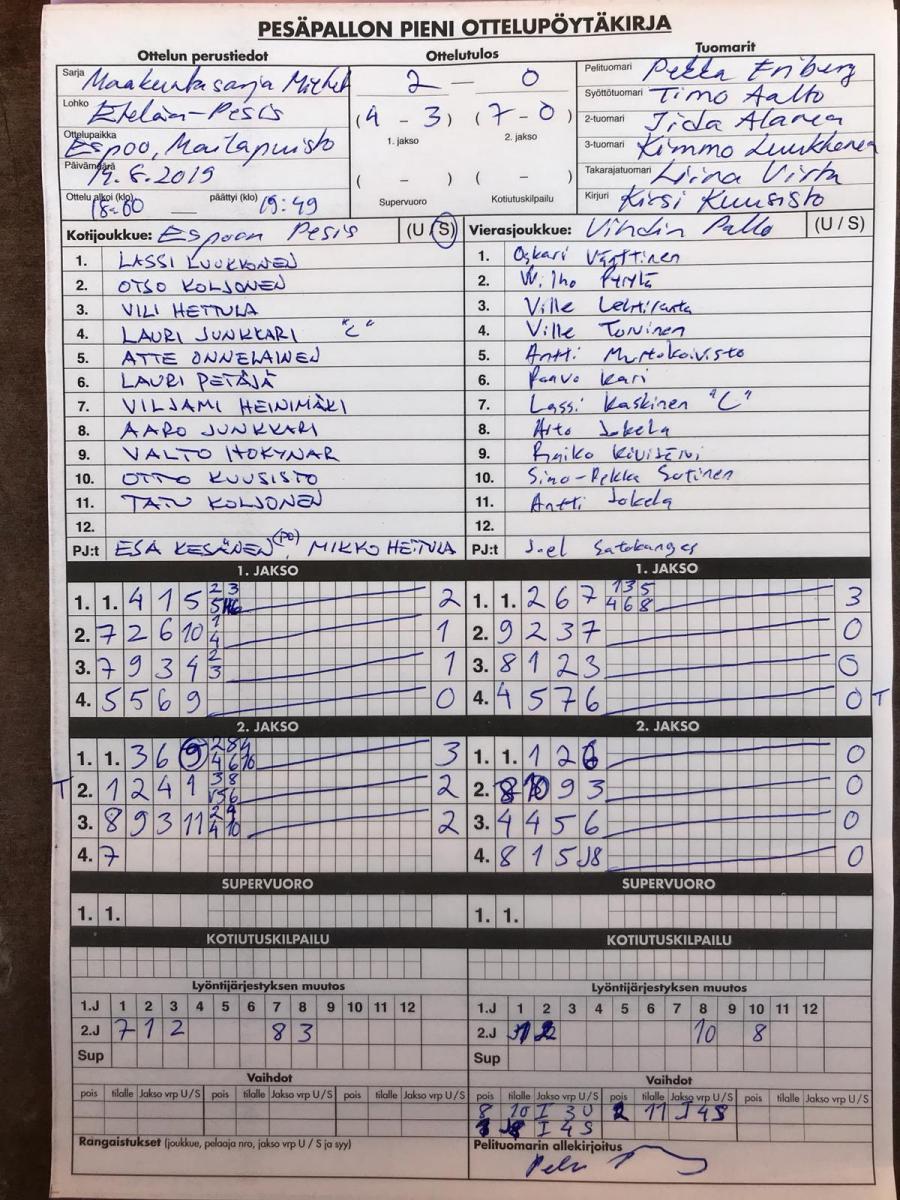 PESÄPALLON PIENI OTTELUPÖYTÄKIRJA
Ottelun perustiedot
Sarja Maakuntasarja Miehet
Lohko Etelän-Pesis
Ottelupaikka Espoo, Mailapuisto
Päivämäärä 14.8.2019
Ottelu alkoi (klo) 18:00 — päättyi (klo) 19:49
Ottelutulos
2 — 0
(4 - 3) (7 - 0)
1. jakso 2. jakso
( - ) ( - )
Supervuoro Kotiutuskilpailu
Tuomarit
Pelituomari Pekka Friberg
Syöttötuomari Timo Aalto
2-tuomari Iida Alanen
3-tuomari Kimmo Luukkonen
Takarajatuomari Liina Virta
Kirjuri Kirsi Kuusisto
Kotijoukkue: Espoon Pesis (U / S)
1. LASSI LUUKKONEN
2. OTSO KOLJONEN
3. VILI HETTULA
4. LAURI JUNKKARI "C"
5. ATTE ONNELAINEN
6. LAURI PETÄJÄ
7. VILJAMI HEINIMÄKI
8. AARO JUNKKARI
9. VALTO HOKYNAR
10. OTTO KUUSISTO
11. TATU KOLJONEN
12.
PJ:t ESA KESÄNEN (PO), MIKKO HETTULA
Vierasjoukkue: Vihdin Pallo (U / S)
1. Oskari Värttinen
2. Wilho Pyrylä
3. Ville Lehtiranta
4. Ville Torvinen
5. Antti Murtokoivisto
6. Paavo Kari
7. Lassi Kaskinen "C"
8. Arto Jokela
9. Raiko Kivistvi
10. Simo-Pekka Sutinen
11. Antti Jokela
12.
PJ:t Joel Satokangas
1. JAKSO
1. 1. 4 1 5 2 3 2
2. 7 2 6 10 1 4 1
3. 7 9 3 4 2 3 1
4. 5 5 6 9 0
2. JAKSO
1. 1. 3 6 9 3
2. 1 2 4 1 2
T
3. 8 9 3 11 2
4. 7
SUPERVUORO
1. 1.
KOTIUTUSKILPAILU
Lyöntijärjestyksen muutos
1.J 1 2 3 4 5 6 7 8 9 10 11 12
2.J 7 1 2 8 3
Sup
Vaihdot
pois tilalle Jakso vrp U/S pois tilalle Jakso vrp U/S pois tilalle Jakso vrp U/S
Rangaistukset (joukkue, pelaaja nro, jakso vrp U / S ja syy)
1. JAKSO
1. 1. 2 6 7 1 3 5 4 6 8 3
2. 9 2 3 7 0
3. 8 1 2 3 0
4. 4 5 7 6 0 T
2. JAKSO
1. 1. 1 2 6 0
2. 8 10 9 3 0
3. 4 4 5 6 0
4. 8 1 5 J8 0
SUPERVUORO
1. 1.
KOTIUTUSKILPAILU
Lyöntijärjestyksen muutos
1.J 1 2 3 4 5 6 7 8 9 10 11 12
2.J 10 8
Sup
Vaihdot
pois tilalle Jakso vrp U/S pois tilalle Jakso vrp U/S pois tilalle Jakso vrp U/S
8 10 I 3 U 2 11 I 4 S
I 4 S
Pelituomarin allekirjoitus